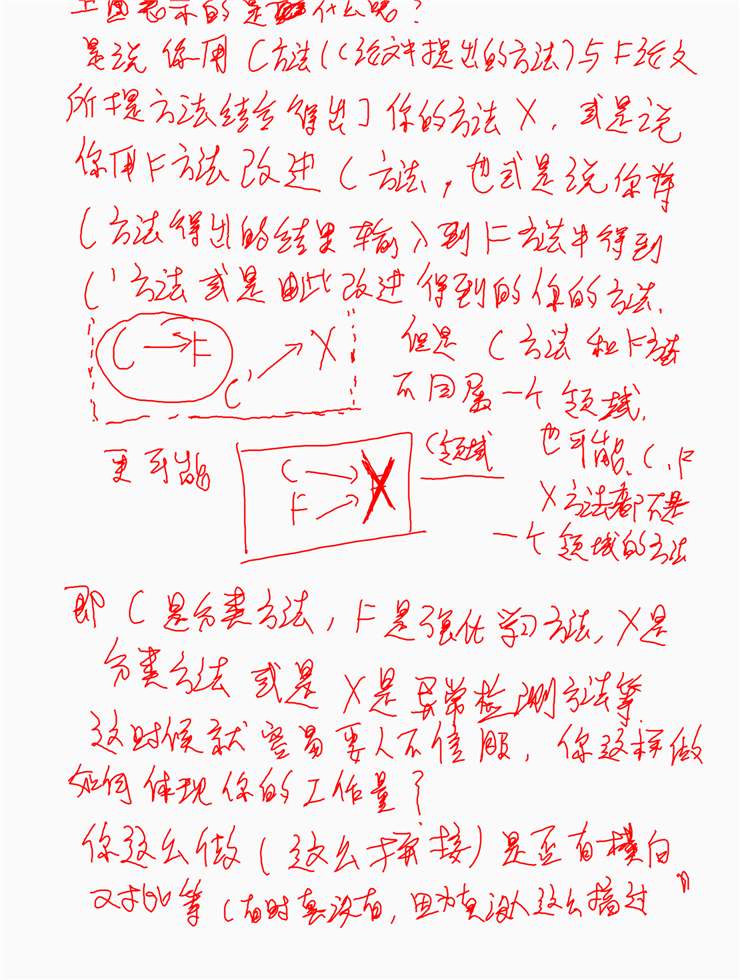 上图表示的是什么呢？
是说你用C方法(C论文中提出的方法)与F论文
所提方法结合得出了你的方法X，或是说
你用F方法改进C方法，也或是说你将
C方法得出的结果输入到F方法中得到
C'方法或是由此改进得到的你的方法.
C → F C' → X
但是C方法和F方法
不同属一个领域.
更可能
C →
F → X
C领域
也可能.C、F
X方法都不是
一个领域的方法
即C是分类方法，F是强化学习方法，X是
分类方法或是X是异常检测方法等
这时候就容易要人不信服，你这样做
如何体现你的工作量？
你这么做(这么拼接)是否有横向
对比等(有时真没有，因为真没人这么搞过